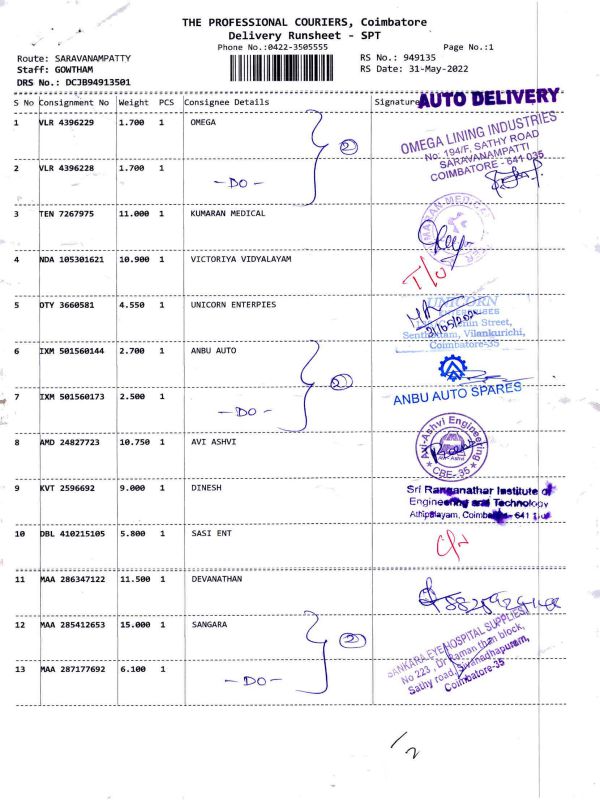 THE PROFESSIONAL COURIERS, Coimbatore
Delivery Runsheet - SPT
Phone No.:0422-3505555 Page No.:1
Route: SARAVANAMPATTY RS No.: 949135
Staff: GOWTHAM RS Date: 31-May-2022
DRS No.: DCJB94913501
S No Consignment No Weight PCS Consignee Details Signature
AUTO DELIVERY
1 VLR 4396229 1.700 1 OMEGA
2
OMEGA LINING INDUSTRIES
No: 194/F, SATHY ROAD
SARAVANAMPATTI
COIMBATORE - 641 035
2 VLR 4396228 1.700 1
- DO -
3 TEN 7267975 11.000 1 KUMARAN MEDICAL
4 NDA 105301621 10.900 1 VICTORIYA VIDYALAYAM
T/O
5 DTY 3660581 4.550 1 UNICORN ENTERPIES
UNICORN
ENTERPRISES
Street,
Vilankurichi,
Coimbatore-35
6 IXM 501560144 2.700 1 ANBU AUTO
2
ANBU AUTO SPARES
7 IXM 501560173 2.500 1
- DO -
8 AMD 24827723 10.750 1 AVI ASHVI
Avi-Ashvi Engineering
CBE-35
9 KVT 2596692 9.000 1 DINESH
Sri Ranganathar Institute of
Engineering and Technology
Athipalayam, Coimbatore - 641
10 DBL 410215105 5.800 1 SASI ENT
11 MAA 286347122 11.500 1 DEVANATHAN
12 MAA 285412653 15.000 1 SANGARA
2
SANKARA EYE HOSPITAL SUPPLIES
No 223, Dr Raman than block,
Sathy road, Sivanadhapuram,
Coimbatore-35
13 MAA 287177692 6.100 1
- DO -
1/2